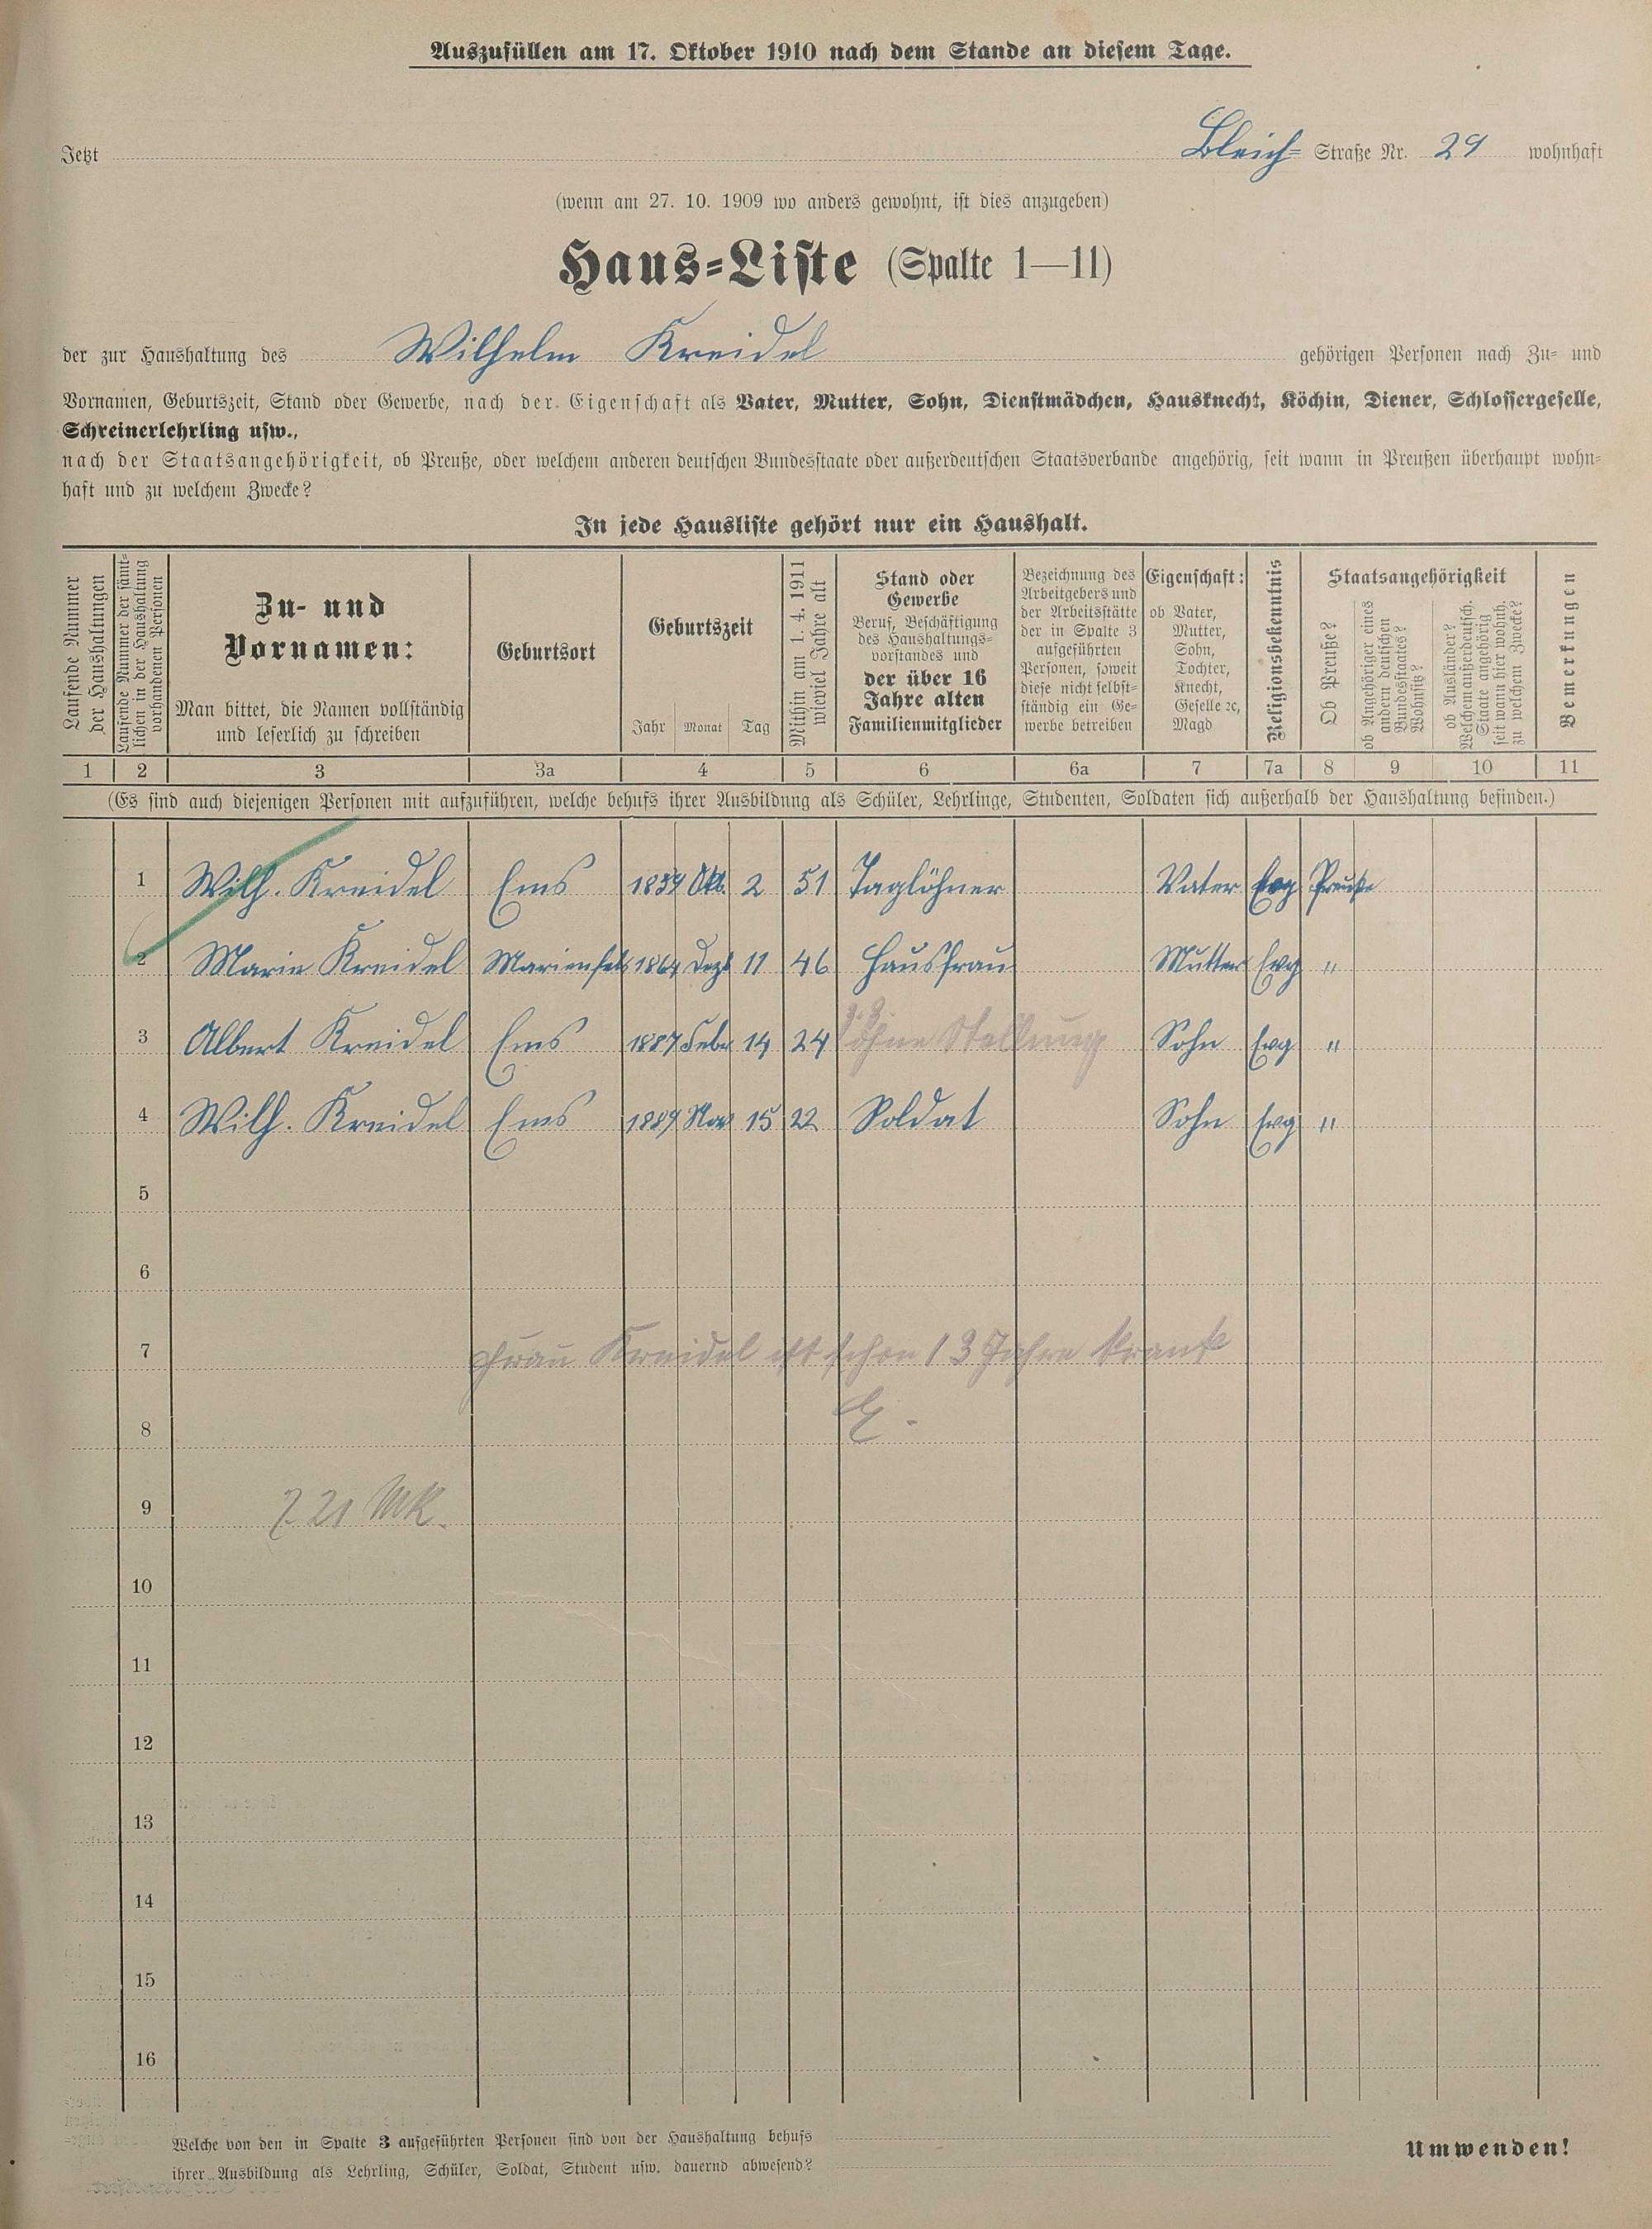 Auszufüllen am 17. Oktober 1910 nach dem Stande an diesem Tage.
Jetzt Bleich= Straße Nr. 29 wohnhaft
(wenn am 27. 10. 1909 wo anders gewohnt, ist dies anzugeben)
Haus=Liste (Spalte 1—11)
der zur Haushaltung des Wilhelm Kreidel gehörigen Personen nach Zu= und
Vornamen, Geburtszeit, Stand oder Gewerbe, nach der Eigenschaft als Vater, Mutter, Sohn, Dienstmädchen, Hausknecht, Köchin, Diener, Schlossergeselle,
Schreinerlehrling usw.,
nach der Staatsangehörigkeit, ob Preuße, oder welchem anderen deutschen Bundesstaate oder außerdeutschen Staatsverbande angehörig, seit wann in Preußen überhaupt wohn=
haft und zu welchem Zwecke?
In jede Hausliste gehört nur ein Haushalt.
Laufende Nummer
der Haushaltungen
Laufende Nummer der sämt=
lichen in der Haushaltung
vorhandenen Personen
Zu- und
Vornamen:
Man bittet, die Namen vollständig
und leserlich zu schreiben
Geburtsort
Geburtszeit
Jahr Monat Tag
Mithin am 1. 4. 1911
wieviel Jahre alt
Stand oder
Gewerbe
Beruf, Beschäftigung
des Haushaltungs=
vorstandes und
der über 16
Jahre alten
Familienmitglieder
Bezeichnung des
Arbeitgebers und
der Arbeitsstätte
der in Spalte 3
aufgeführten
Personen, soweit
diese nicht selbst=
ständig ein Ge=
werbe betreiben
Eigenschaft:
ob Vater,
Mutter,
Sohn,
Tochter,
Knecht,
Geselle ꝛc,
Magd
Religionsbekenntnis
Staatsangehörigkeit
Ob Preuße?
ob Angehöriger eines
andern deutschen
Bundesstaates?
Wohnsitz?
ob Ausländer?
Welchem außerdeutsch.
Staate angehörig
seit wann hier wohnh.
zu welchem Zwecke?
Bemerkungen
1 2 3 3a 4 5 6 6a 7 7a 8 9 10 11
(Es sind auch diejenigen Personen mit aufzuführen, welche behufs ihrer Ausbildung als Schüler, Lehrlinge, Studenten, Soldaten sich außerhalb der Haushaltung befinden.)
1 Wilh. Kreidel Ems 1859 Okt. 2 51 Taglöhner Vater Evg Preuße
2 Marie Kreidel Marienfels 1864 Dezb 11 46 Hausfrau Mutter Evg "
3 Albert Kreidel Ems 1887 Febr 14 24 z. Z. ohne Stellung Sohn Evg "
4 Wilh. Kreidel Ems 1889 Nov 15 22 Soldat Sohn Evg "
5
6
7 Frau Kreidel ist schon 13 Jahre krank
8
9 21 Mk.
10
11
12
13
14
15
16
Welche von den in Spalte 3 aufgeführten Personen sind von der Haushaltung behufs
ihrer Ausbildung als Lehrling, Schüler, Soldat, Student usw. dauernd abwesend?
Umwenden!